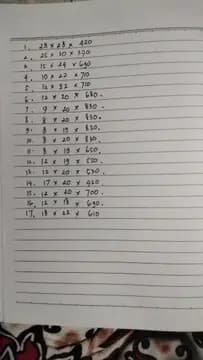 1. 28 x 28 x 420
2. 25 x 20 x 390
3. 15 x 24 x 690
4. 10 x 22 x 710
5. 12 x 32 x 710
6. 12 x 20 x 680.
7. 9 x 20 x 830.
8. 8 x 20 x 830.
9. 8 x 19 x 830.
10. 8 x 20 x 830.
11. 8 x 19 x 650.
12. 12 x 19 x 520.
13. 12 x 20 x 530.
14. 17 x 20 x 920.
15. 12 x 20 x 700.
16. 12 x 18 x 690.
17. 18 x 22 x 610